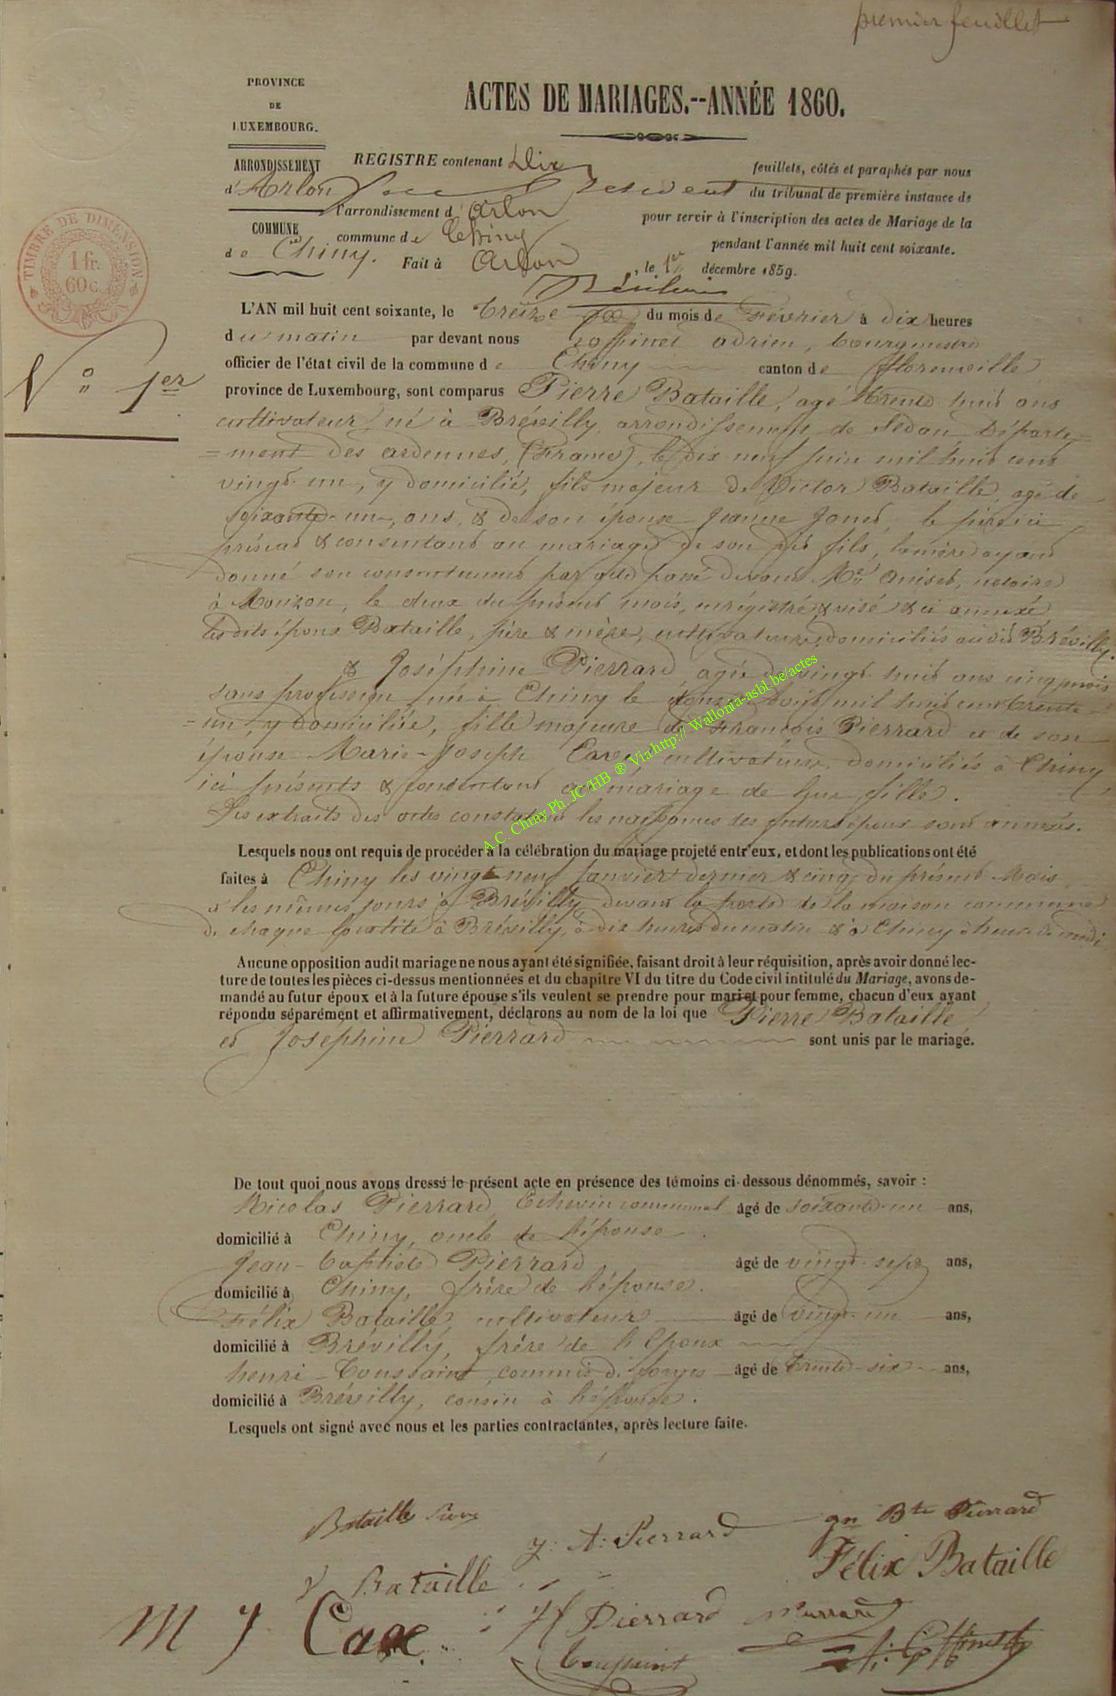 premier feuillet
PROVINCE
DE
LUXEMBOURG.
ACTES DE MARIAGES.--ANNÉE 1860.
ARRONDISSEMENT
d'Arlon
COMMUNE
de Chiny.
REGISTRE contenant Dix feuillets, côtés et paraphés par nous
President du tribunal de première instance de
l'arrondissement d'Arlon pour servir à l'inscription des actes de Mariage de la
commune de Chiny pendant l'année mil huit cent soixante.
Fait à Arlon, le 1er décembre 1859.
TIMBRE DE DIMENSION
1 fr.
60 c.
No 1er
L'AN mil huit cent soixante, le treize du mois de Février à dix heures
du matin par devant nous Goffinet adrien, bourgmestre
officier de l'état civil de la commune de Chiny canton de florenville
province de Luxembourg, sont comparus Pierre Bataille, agé trente huit ans
cultivateur, né à Brévilly, arrondissement de Sedan Départe=
=ment des ardennes, (France), le dix neuf juin mil huit cent
vingt un, y domicilié, fils majeur de Victor Bataille, agé de
soixante-un-ans, & de son épouse Jeanne le père ici
présent & consentant au mariage de son dit fils, la mère ayant
donné son consentement par acte passé devant Me notaire
à Mouzon, le deux du présent mois, enrégistré & visé & ci annexé
les dits époux Bataille, père & mère, cultivateurs domiciliés audit Brévilly.
& Joséphine Pierrard agée de vingt huit ans cinq mois
sans profession, née à Chiny le mil huit cent trente-
=un, y domiciliée, fille majeure de François Pierrard et de son
épouse Marie-Joseph cultivateurs, domiciliés à Chiny
ici présents & consentant au mariage de leur fille.
Les extraits des actes constatant les naissances des futurs époux sont annexés.
Lesquels nous ont requis de procéder à la célébration du mariage projeté entr'eux, et dont les publications ont été
faites à Chiny les vingt-neuf Janvier dernier & cinq du présent mois
& les mêmes jours à Brévilly devant la porte de la maison commune
de chaque localité à Brévilly, à dix heures du matin & à Chiny à heure de midi
Aucune opposition audit mariage ne nous ayant été signifiée, faisant droit à leur réquisition, après avoir donné lec-
ture de toutes les pièces ci-dessus mentionnées et du chapitre VI du titre du Code civil intitulé du Mariage, avons de-
mandé au futur époux et à la future épouse s'ils veulent se prendre pour mari et pour femme, chacun d'eux ayant
répondu séparément et affirmativement, déclarons au nom de la loi que Pierre Bataille
et Josephine Pierrard sont unis par le mariage.
De tout quoi nous avons dressé le présent acte en présence des témoins ci-dessous dénommés, savoir :
Nicolas Pierrard, Echevin communal âgé de soixante-un ans,
domicilié à Chiny, oncle de l'épouse.
Jean-baptiste Pierrard âgé de vingt-sept ans,
domicilié à Chiny, frère de l'épouse.
Félix Bataille, cultivateur âgé de vingt-un ans,
domicilié à Brévilly, frère de l'Epoux
henri-Toussaint, commis de forges âgé de trente-six ans,
domicilié à Brévilly, cousin à l'épouse.
Lesquels ont signé avec nous et les parties contractantes, après lecture faite.
Bataille Pierre
J: A: Pierrard
Bte Pierrard
Félix Bataille
V Bataille
M J
Pierrard
Toussaint
A.C. Chiny Ph. JC HB ® Via http:// Wallonia-asbl.be/actes